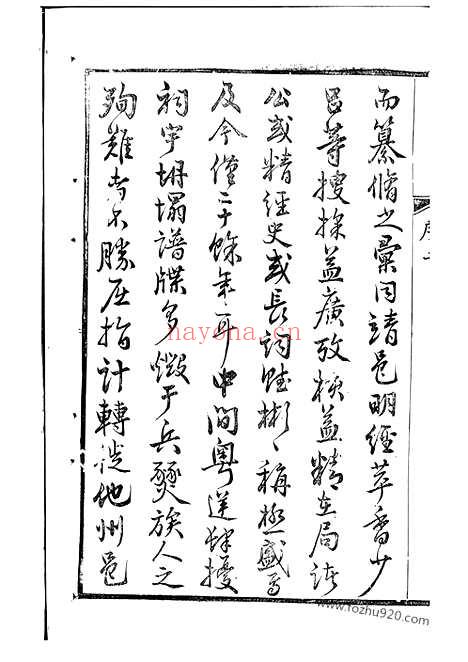 而纂脩之彙同靖邑明經萃香少
呂等搜採益廣攷核益精在局諸
公或精經史或長詞賦彬彬稱極盛焉
及今僅二十餘年耳中間粵逆肆擾
祠宇坍塌譜牒多燬于兵燹族人之
殉難者不勝屈指計轉徙他州邑
序
hayona.cn
www.fozhu920.com